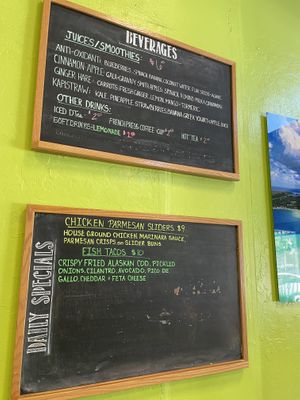 BEVERAGES
JUICES/SMOOTHIES: $6.
ANTI-OXIDANT: BLUEBERRIES, SPINACH, BANANA, COCONUT WATER, FLAX SEEDS, AGAVE
CINNAMON-APPLE: GALA + GRANNY SMITH APPLES, SPINACH, ALMOND MILK + CINNAMON
GINGER HARE: CARROTS, FRESH GINGER, LEMON, MANGO + TURMERIC
KAPISTRAW: KALE, PINEAPPLE, STRAWBERRIES, BANANA, GREEK YOGURT + APPLE JUICE
OTHER DRINKS:
ICED TEA $2 FRENCH PRESS COFFEE CUP HOT TEA $2
SOFT DRINKS + LEMONADE
DAILY SPECIALS
CHICKEN PARMESAN SLIDERS $9
HOUSE GROUND CHICKEN, MARINARA SAUCE,
PARMESAN CRISPS ON SLIDER BUNS
FISH TACOS $10
CRISPY FRIED ALASKAN COD, PICKLED
ONIONS, CILANTRO, AVOCADO, PICO DE
GALLO, CHEDDAR + FETA CHEESE